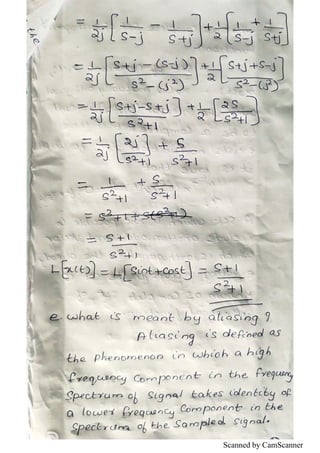 the
= 1/2j [ 1/(s-j) - 1/(s+j) ] + 1/2 [ 1/(s-j) + 1/(s+j) ]
= 1/2j [ (s+j-(s-j))/(s²-(j²)) ] + 1/2 [ (s+j+s-j)/(s²-(j²)) ]
= 1/2j [ (s+j-s+j)/(s²+1) ] + 1/2 [ 2s/(s²+1) ]
= 1/2j [ 2j/(s²+1) ] + s/(s²+1)
= 1/(s²+1) + s/(s²+1)
= s²+1+s(s²+1)
= (s+1)/(s²+1)
L[x(t)] = L[sint+cost] = (s+1)/(s²+1)
e. what is meant by aliasing?
Aliasing is defined as
the phenomenon in which a high
frequency component in the frequency
spectrum of signal takes identity of
a lower frequency component in the
spectrum of the sampled signal.
Scanned by CamScanner